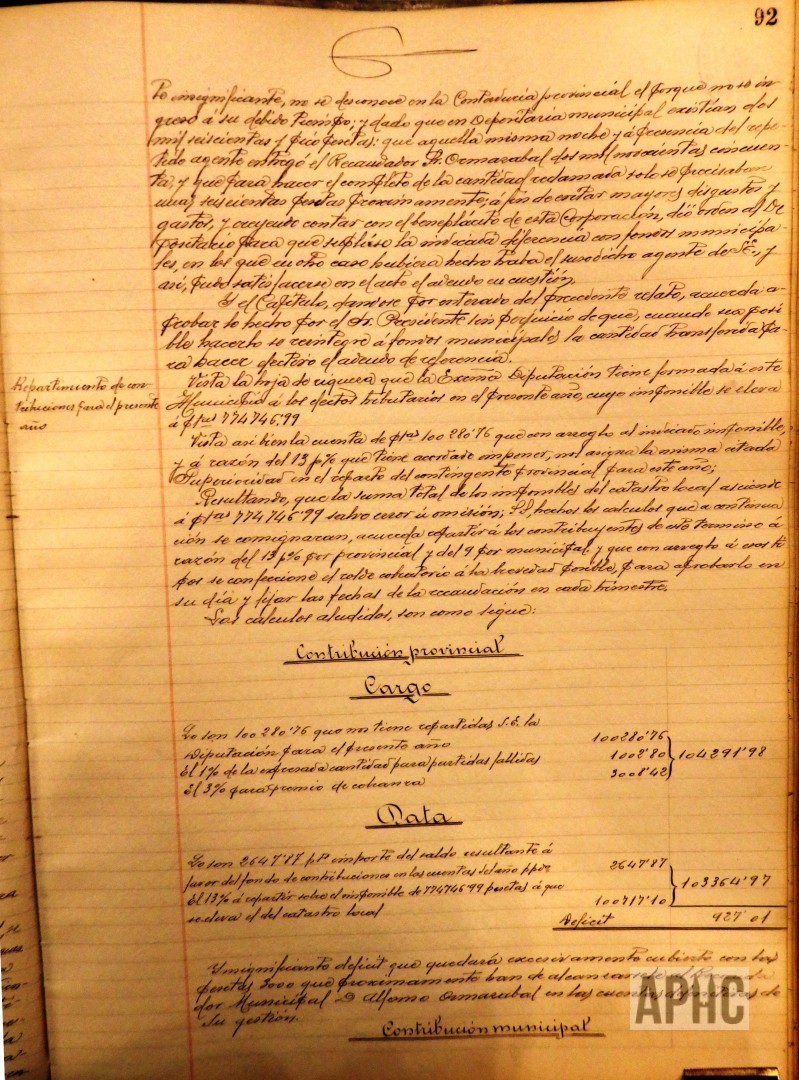 92
to insignificante, no se desconoce en la Contaduría provincial el porque no se in-
gresó á su debido tiempo; y dado que en Depositaria municipal existían dos
mil seiscientas y pico pesetas: que aquella misma noche y á presencia del repe-
tido agente entregó el Recaudador Sr. Ormazabal dos mil novecientas cincuen-
ta, y que para hacer el completo de la cantidad reclamada solo se precisaban
unas seiscientas pesetas proximamente; á fin de evitar mayores disgustos y
gastos, y creyendo contar con el beneplácito de esta Corporación, dió orden al De-
positario para que supliese la indicada diferencia con fondos municipa-
les, en los que en otro caso hubiera hecho traba el susodicho agente de S.E., y
así, pudo satisfacerse en el acto el adeudo en cuestión.
Y el Capítulo, dandose por enterado del precedente relato, acuerda a-
probar lo hecho por el Sr. Presidente sin perjuicio de que, cuando sea posi-
ble hacerlo se reintegre á fondos municipales la cantidad transferida pa-
ra hacer efectivo el adeudo de referencia.
Repartimiento de con-
tribuciones para el presente
año
Vista la hoja de riqueza que la Excma Diputación tiene formada á este
Municipio á los efectos tributarios en el presente año, cuyo imponible se eleva
á ptas 774746'99
Vista asi bien la cuenta de ptas 100280'76 que con arreglo al indicado imponible,
y á razón del 13 p% que tiene acordado imponer, nos asigna la misma citada
Superioridad en el reparto del contingente provincial para este año;
Resultando, que la suma total de los imponibles del catastro local asciende
á ptas 774746'99 salvo error ú omisión; S.S. hechos los calculos que a continua-
ción se consignaran, acuerda repartir á los contribuyentes de este termino á
razón del 13 p% por provincial y del 9 por municipal, y que con arreglo á esos ti-
pos se confeccione el rolde cobratorio á la brevedad posible, para aprobarlo en
su día y fijar las fechas de la recaudación en cada trimestre.
Los calculos aludidos, son como sigue:
Contribución provincial
Cargo
Lo son 100280'76 que nos tiene repartidas S.E. la
Diputación para el presente año 100280'76
El 1% de la expresada cantidad para partidas fallidas 1002'80 } 104291'98
El 3% para premio de cobranza 3008'42
Data
Lo son 2647'87 importe del saldo resultante á
favor del fondo de contribuciones en las cuentas del año ppdo 2647'87
El 13% á repartir sobre el imponible de 774746'99 pesetas á que } 103364'97
se eleva el del catastro local 100717'10
Deficit 927'01
Ynsignificante deficit que quedará excesivamente cubierto con las
pesetas 3000 que proximamente han de alcanzarse al Recauda-
dor Municipal D Alfonso Ormazabal en las cuentas definitivas de
su gestión.
Contribución municipal
APHC